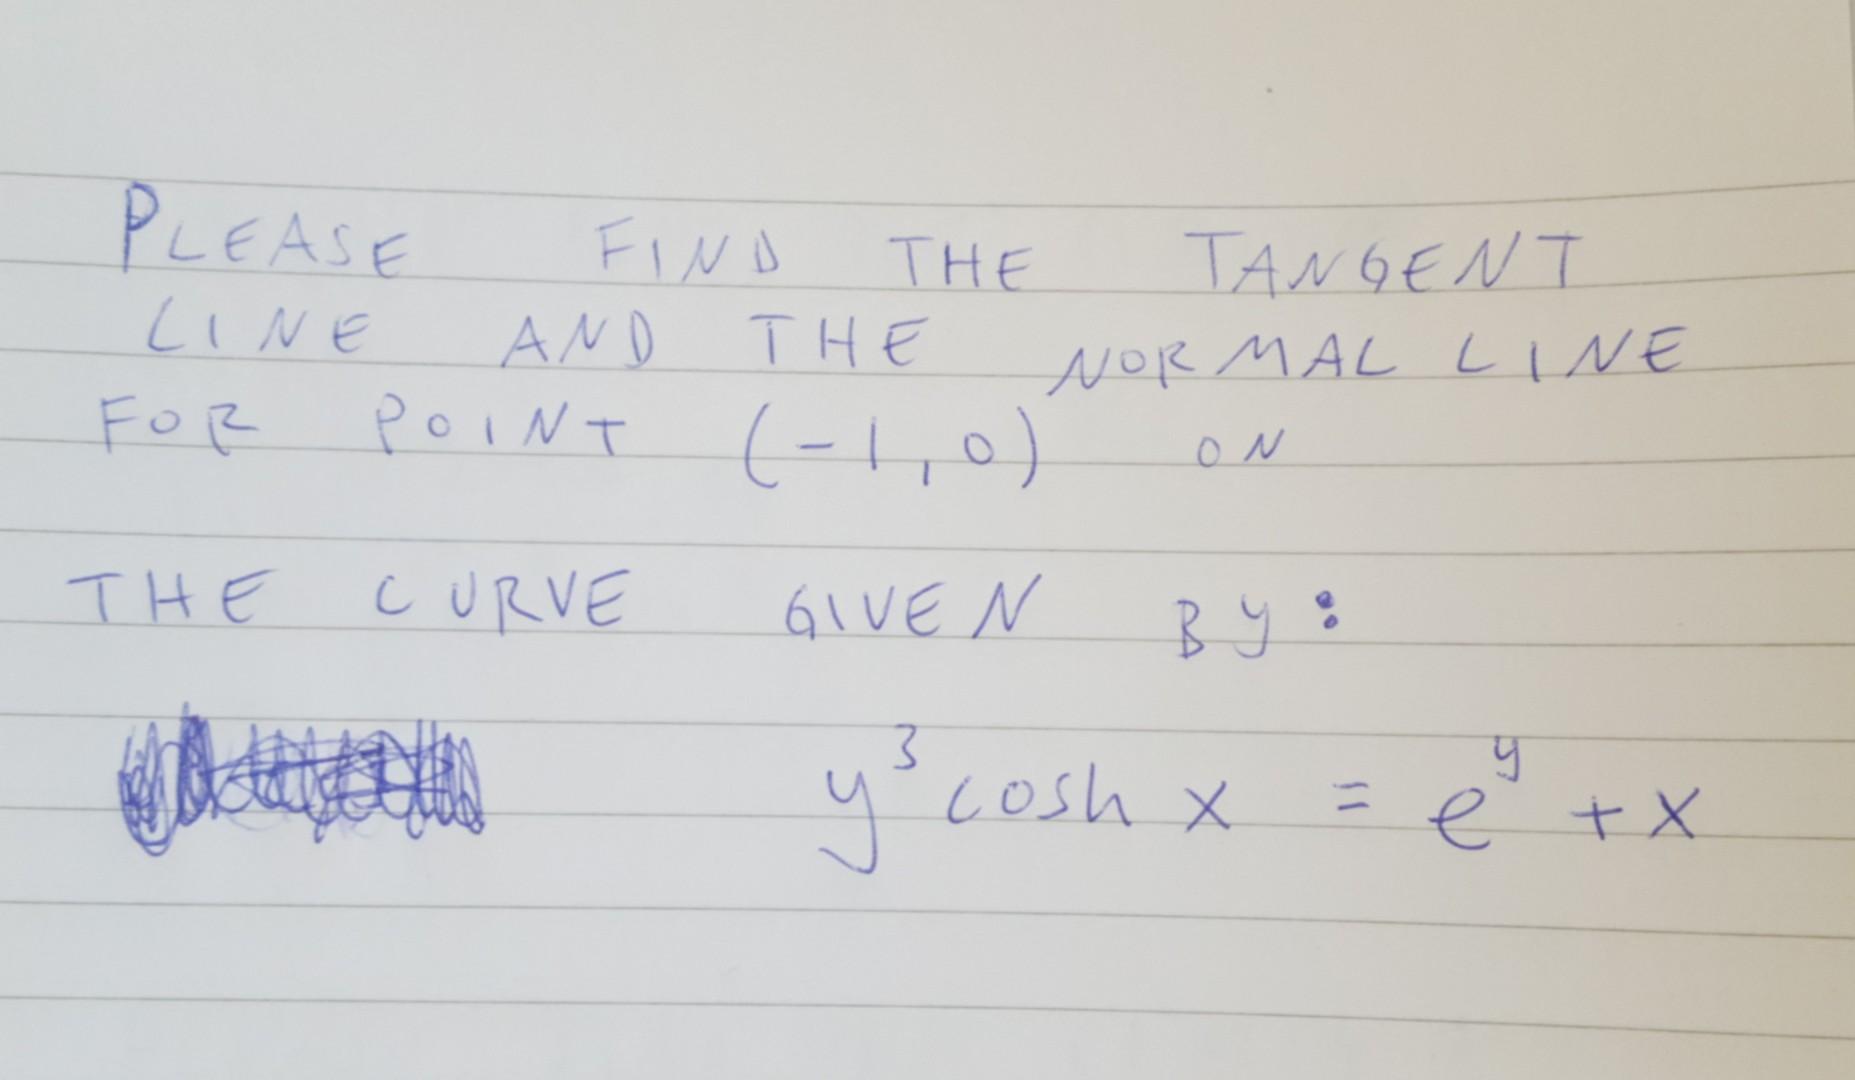 PLEASE FIND THE TANGENT
LINE AND THE NORMAL LINE
FOR POINT (-1,0) ON
THE CURVE GIVEN BY:
y³ cosh x = e^y + x